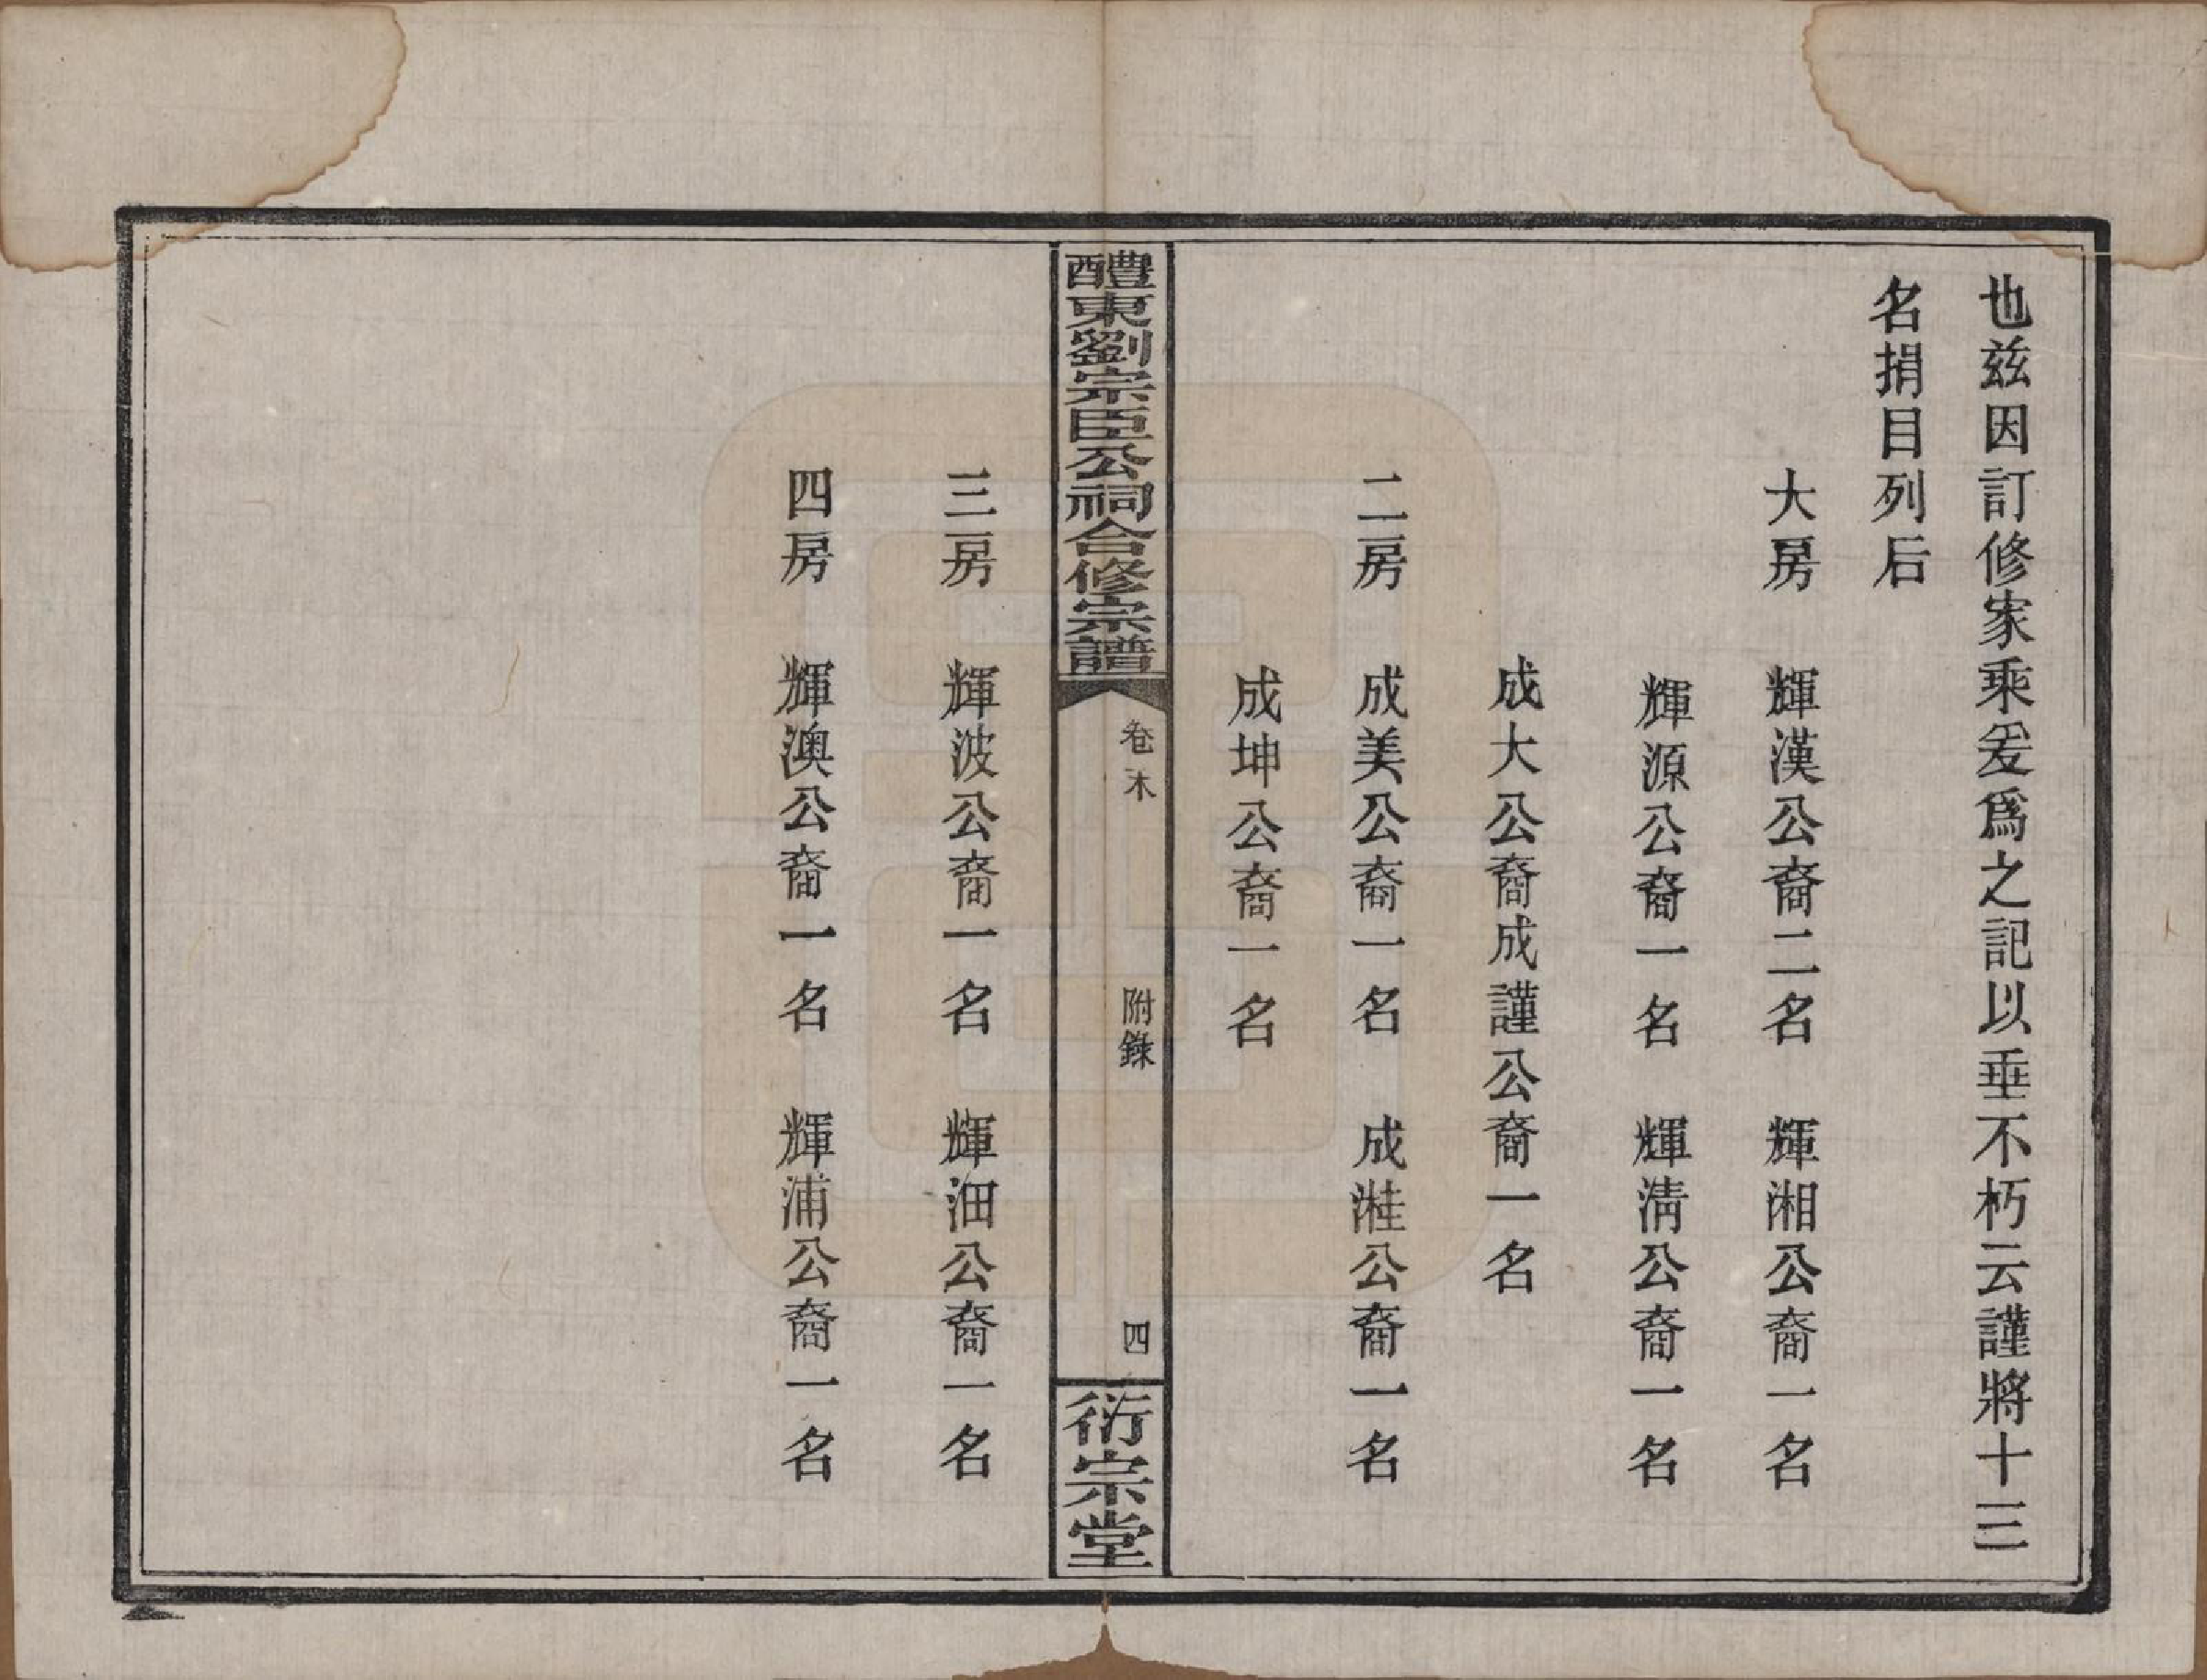 也茲因訂修家乘爰爲之記以垂不朽云謹將十三
名捐目列后
大房　輝漢公裔二名　輝湘公裔一名
輝源公裔一名　輝淸公裔一名
成大公裔成謹公裔一名
二房　成美公裔一名　成溎公裔一名
成坤公裔一名
醴東劉宗臣公祠合修宗譜
卷末
附錄
四
衍宗堂
三房　輝波公裔一名　輝沺公裔一名
四房　輝澳公裔一名　輝浦公裔一名